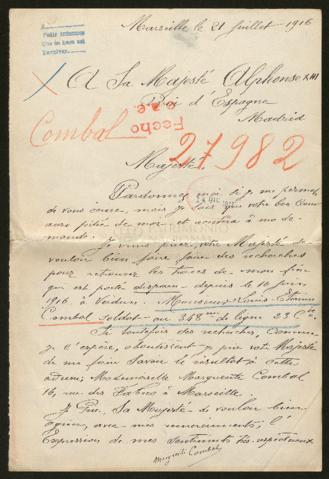 Marseille le 21 Juillet - 1916
A Sa Majesté Alphonse XIII
Roi d'Espagne
Madrid
Combal
Fecho
27982
Majesté
Pardonnez moi si je me permets
de vous écrire, mais je sais que votre bon Cœur
aura pitié de moi et voudra à ma de-
mande.
Je viens prier votre Majesté de
vouloir bien faire faire des recherches
pour retrouver les traces de mon
qui est porté disparu depuis le 10 Juin
1916 à Verdun - Monsieur Louis Etienne
Combal soldat au 348me de ligne 23 Cie
Si toutefois ces recherches, comme
je l'espère, aboutissent je prie votre Majesté
de me faire savoir le résultat à cette
adresse; Mademoiselle Marguerite Combal
16, rue des à Marseille.
Je Prie, Sa Majesté de vouloir bien
agréer, avec mes remerciements, l'
Expression de mes Sentiments très respectueux
Marguerite Combal